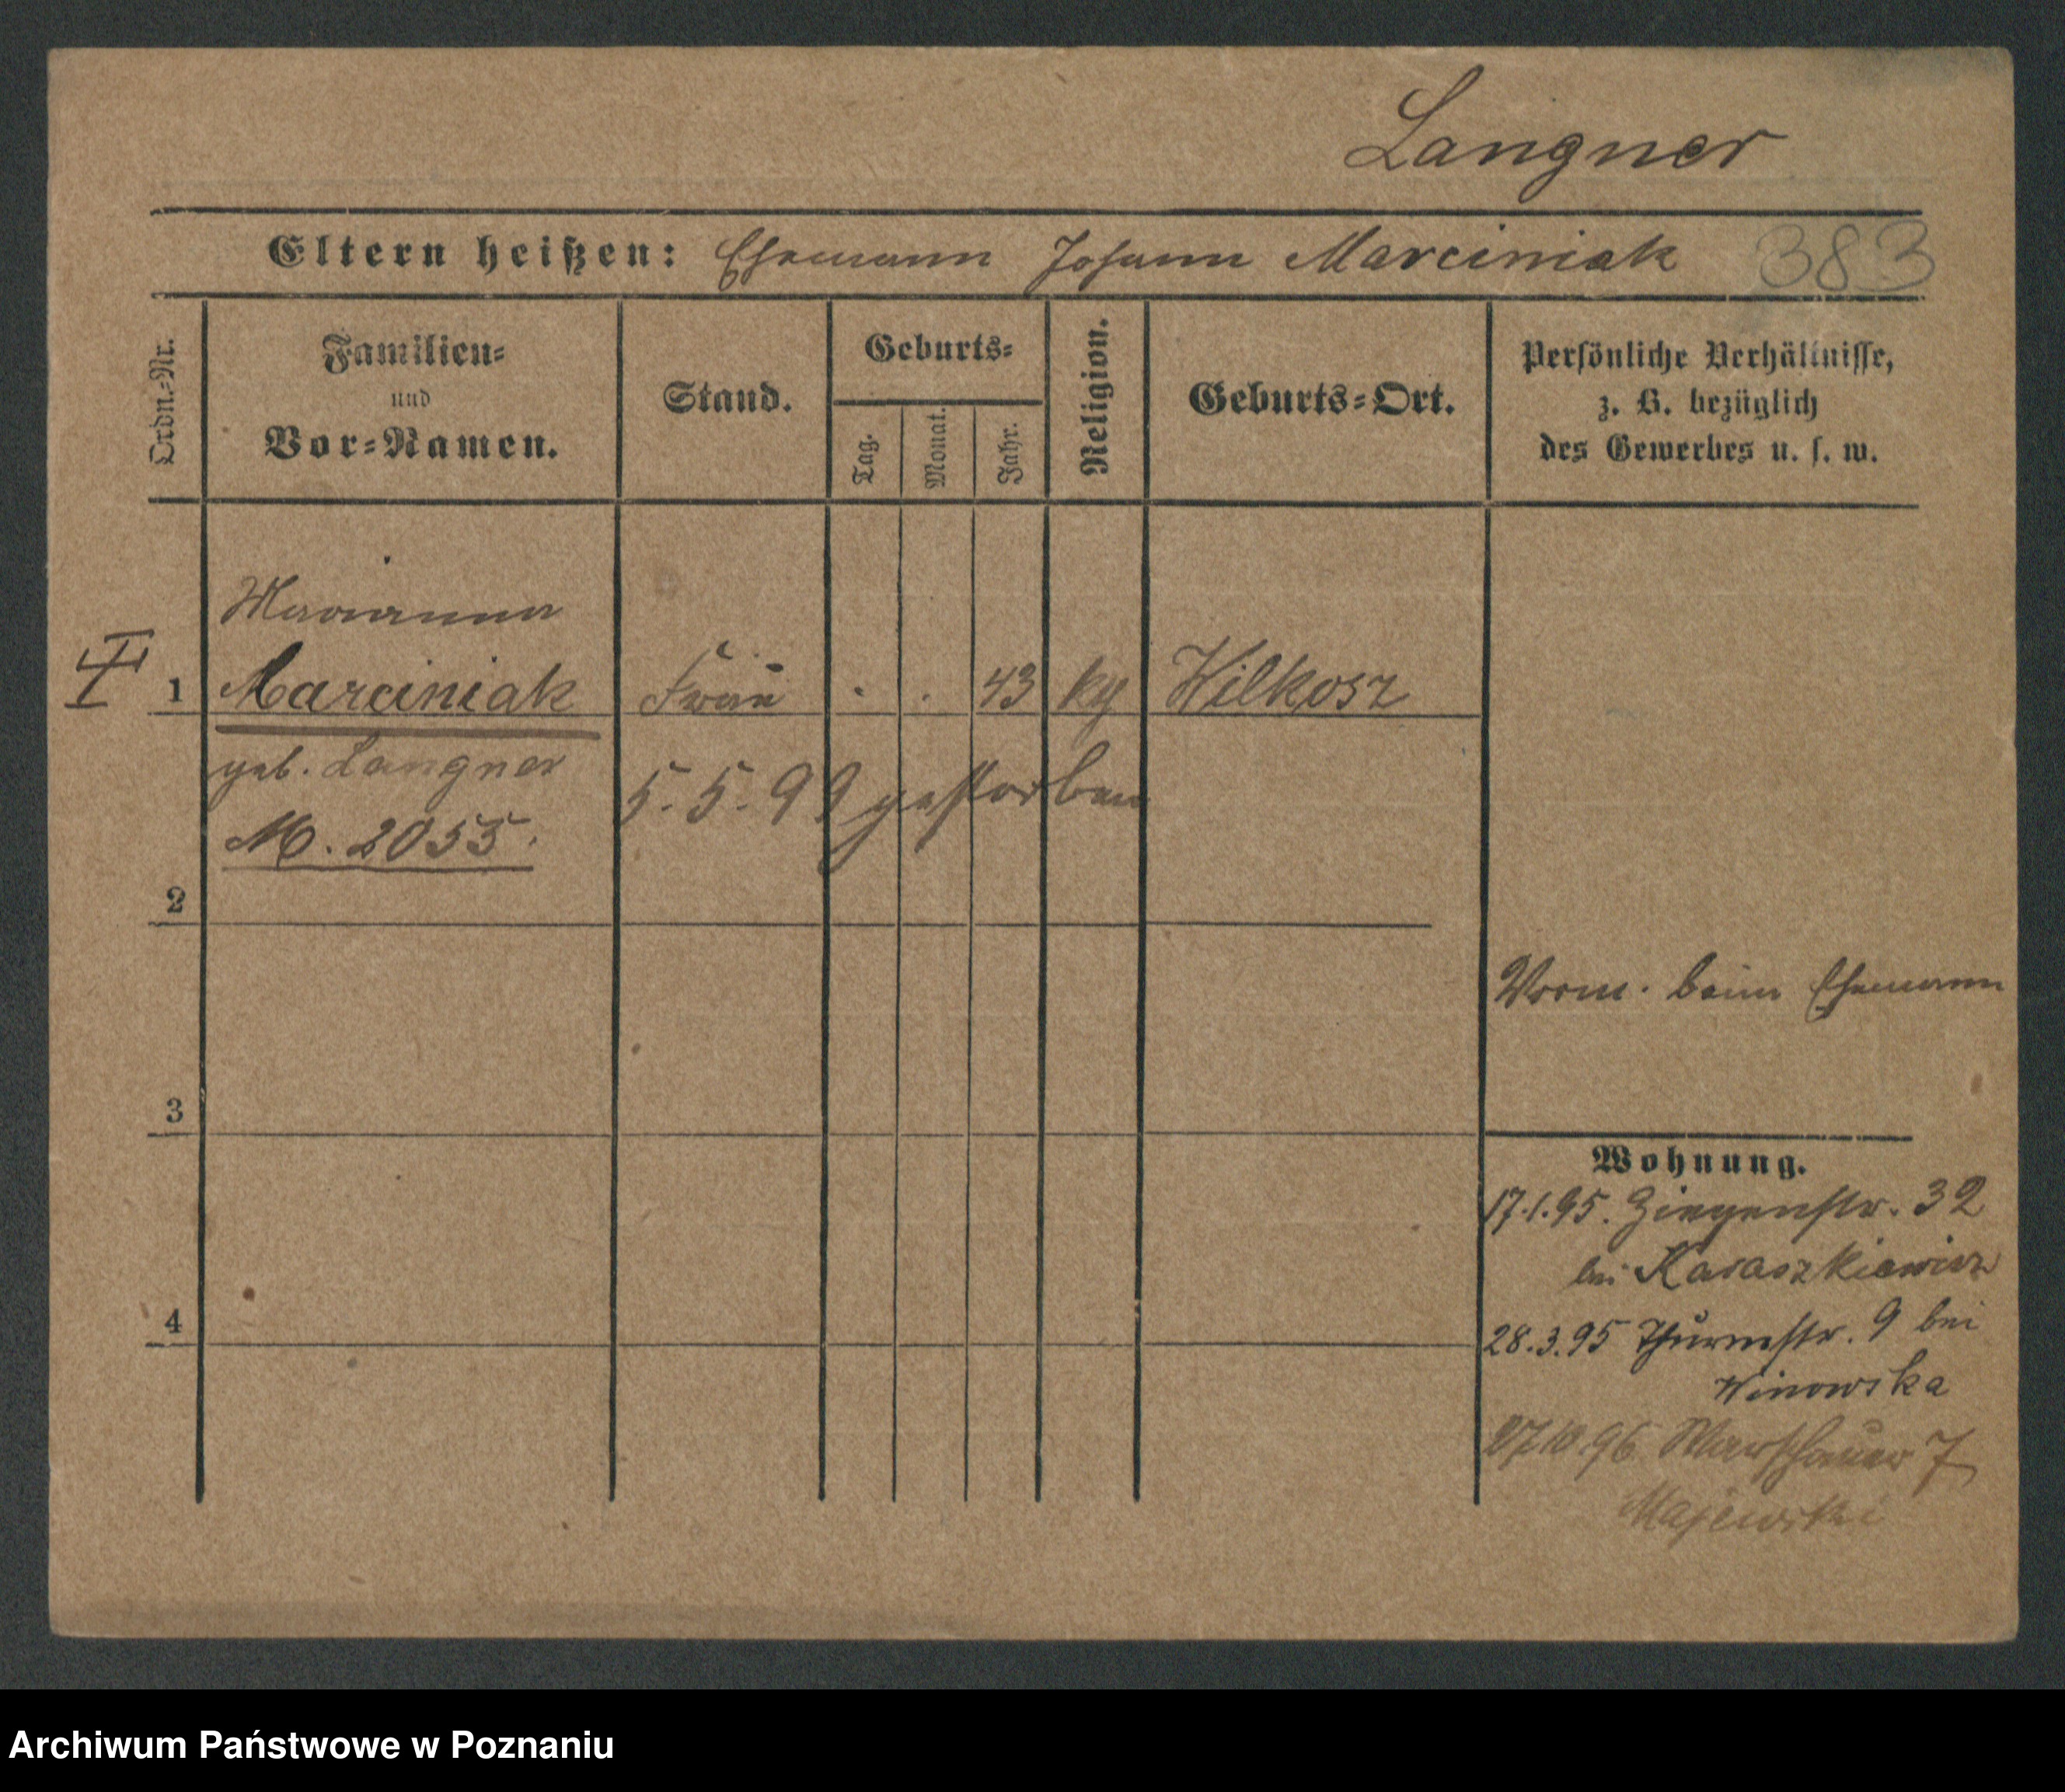 Langner
Eltern heißen: Ehemann Johann Marciniak 383
Ordn.-Nr.
Familien-
und
Vor-Namen.
Stand.
Geburts-
Tag.
Monat.
Jahr.
Religion.
Geburts-Ort.
Persönliche Verhältnisse,
z. B. bezüglich
des Gewerbes u. s. w.
Marianna
I 1 Marciniak Frau . . 43 Wilkosz
geb. Langner
5.5.99 gestorben
M. 2055.
2
Vorm. beim Ehemann
3
Wohnung.
17.1.95. Ziegenstr. 32
bei Karaszkiewicz
4
28.3.95 Thurmstr. 9 bei
Winowska
27.10.96. Warschauer 7
Majewski
Archiwum Państwowe w Poznaniu